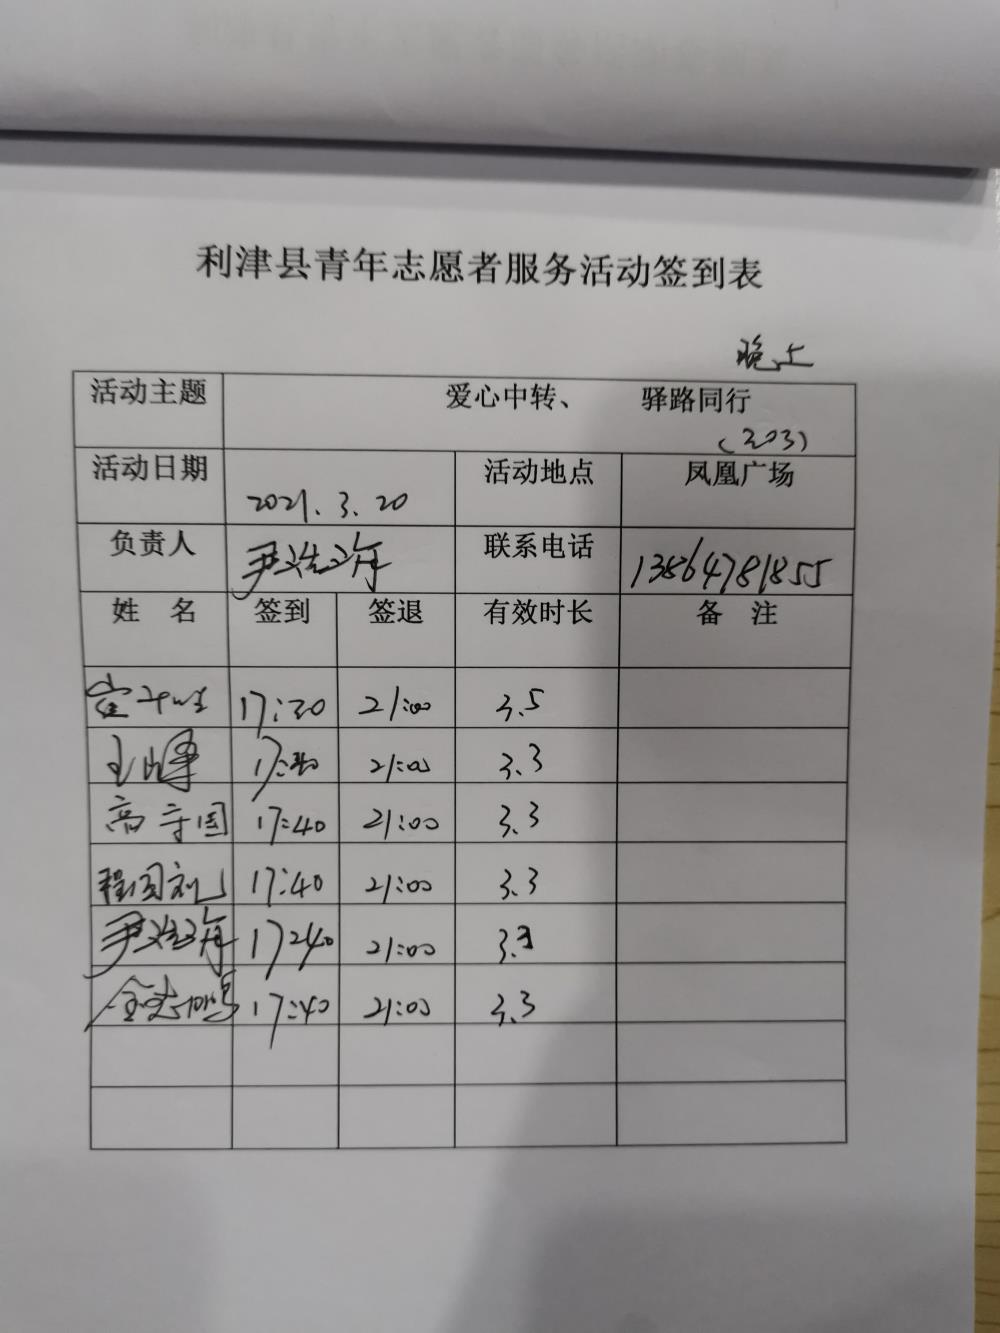 利津县青年志愿者服务活动签到表
晚上
活动主题 爱心中转、 驿路同行
(203)
活动日期 2021.3.20 活动地点 凤凰广场
负责人 尹 联系电话 13864781855
姓 名 签到 签退 有效时长 备 注
17:30 21:00 3.5
王 17:40 21:00 3.3
高守国 17:40 21:00 3.3
程国礼 17:40 21:00 3.3
尹 17:40 21:00 3.3
17:40 21:00 3.3